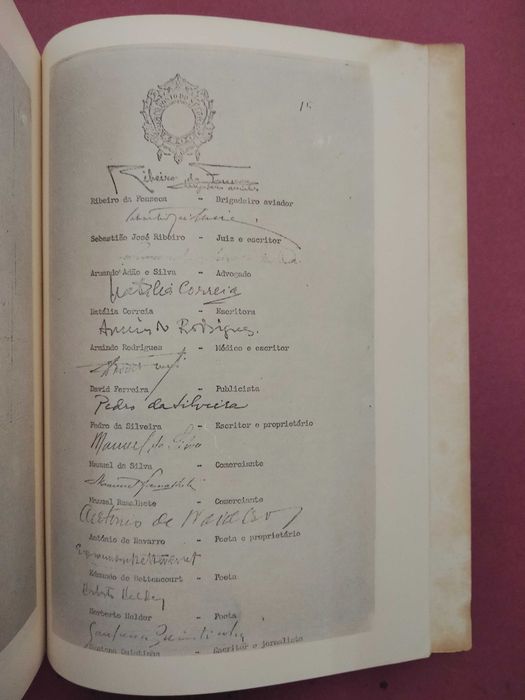 15
Ribeiro da Fonseca
Ribeiro da Fonseca - Brigadeiro aviador
Sebastião José Ribeiro - Juiz e escritor
Armando Adão e Silva - Advogado
Natália Correia
Natália Correia - Escritora
Armindo Rodrigues.
Armindo Rodrigues - Médico e escritor
David Ferreira - Publicista
Pedro da Silveira
Pedro da Silveira - Escritor e proprietário
Manuel da Silva
Manuel da Silva - Comerciante
Manuel Ramalhete
Manuel Ramalhete - Comerciante
António de Navarro
António de Navarro - Poeta e proprietário
Edmundo de Bettencourt
Edmundo de Bettencourt - Poeta
Herberto Helder
Herberto Helder - Poeta
Santana Quintinha
Santana Quintinha - Escritor e jornalista